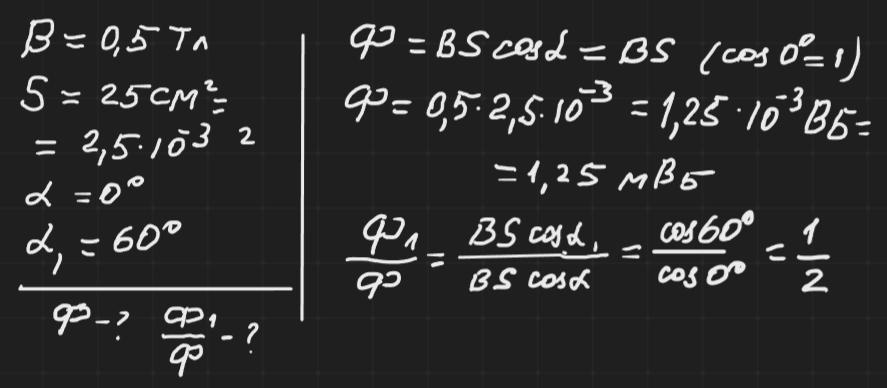 B = 0,5 Тл
S = 25 см² =
= 2,5·10⁻³ ²
α = 0°
α₁ = 60°
Ф - ? Ф₁/Ф - ?
Ф = BS cosα = BS (cos 0° = 1)
Ф = 0,5·2,5·10⁻³ = 1,25·10⁻³ Вб =
= 1,25 мВб
Ф₁/Ф = BS cosα₁/BS cosα = cos60°/cos0° = 1/2